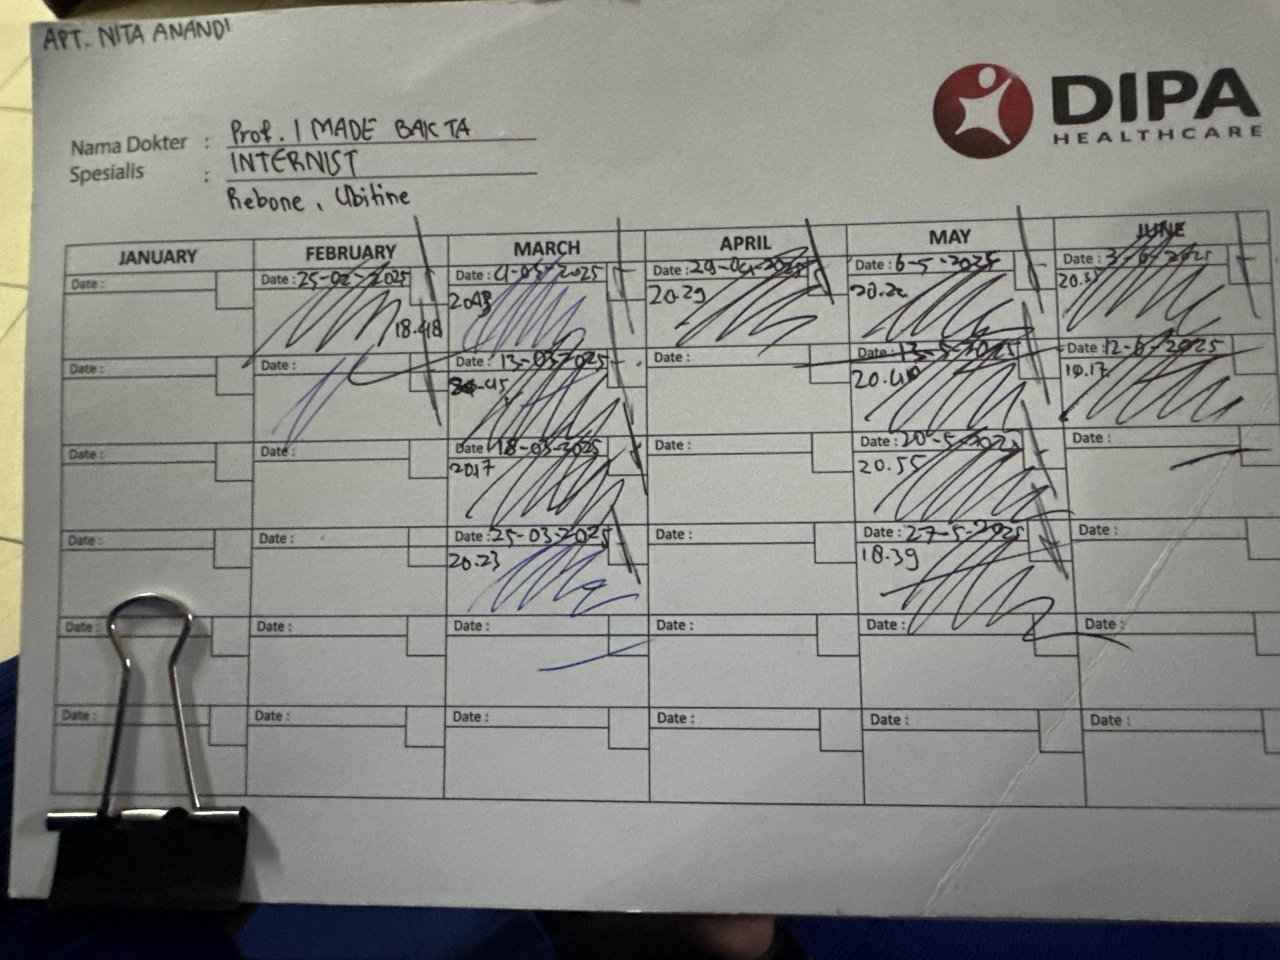 APT. NITA ANANDI
DIPA
HEALTHCARE
Nama Dokter : Prof. I MADE BAKTA
Spesialis : INTERNIST
Rebone, Ubitine
JANUARY FEBRUARY MARCH APRIL MAY JUNE
Date : Date : 25-02-2025 Date : Date : 29-04-2025 Date : 6-5-2025 Date : 3-6-2025
18.48 20.29
Date : Date : Date : 13-03-2025 Date : Date : 13-5-2025 Date : 12-6-2025
Date : Date : Date : 18-03-2025 Date : Date : 20-5-2025 Date :
2017 20.55
Date : Date : Date : 25-03-2025 Date : Date : 27-5-2025 Date :
20.23 18.39
Date : Date : Date : Date : Date : Date :
Date : Date : Date : Date : Date : Date :